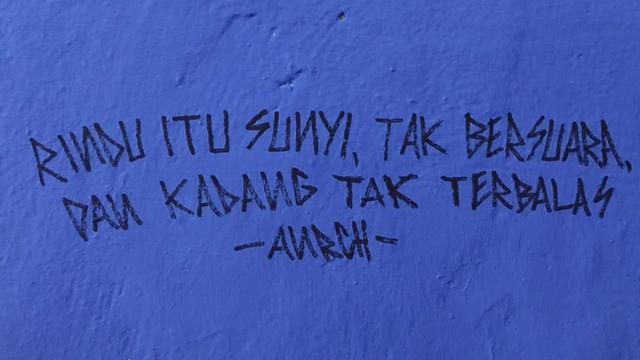 RINDU ITU SUNYI, TAK BERSUARA,
DAN KADANG TAK TERBALAS
-ANRCH-